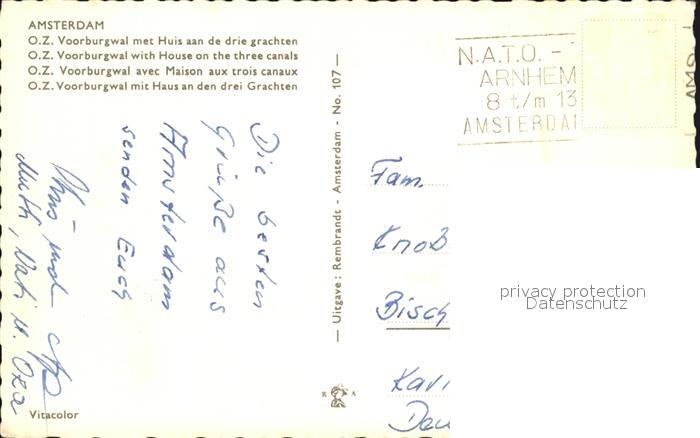 AMSTERDAM
O.Z. Voorburgwal met Huis aan de drie grachten
O.Z. Voorburgwal with House on the three canals
O.Z. Voorburgwal avec Maison aux trois canaux
O.Z. Voorburgwal mit Haus an den drei Grachten
N.A.T.O. -
ARNHEM
8 t/m 13
AMSTERDA
AMS
Die besten
Grüße aus
Amsterdam
senden Euch
und
Mutti, Vati u. Oxa
— Uitgave: Rembrandt - Amsterdam - No. 107 —
Fam.
Knoß
Bisch
Karl
Deu
privacy protection
Datenschutz
R A
Vitacolor